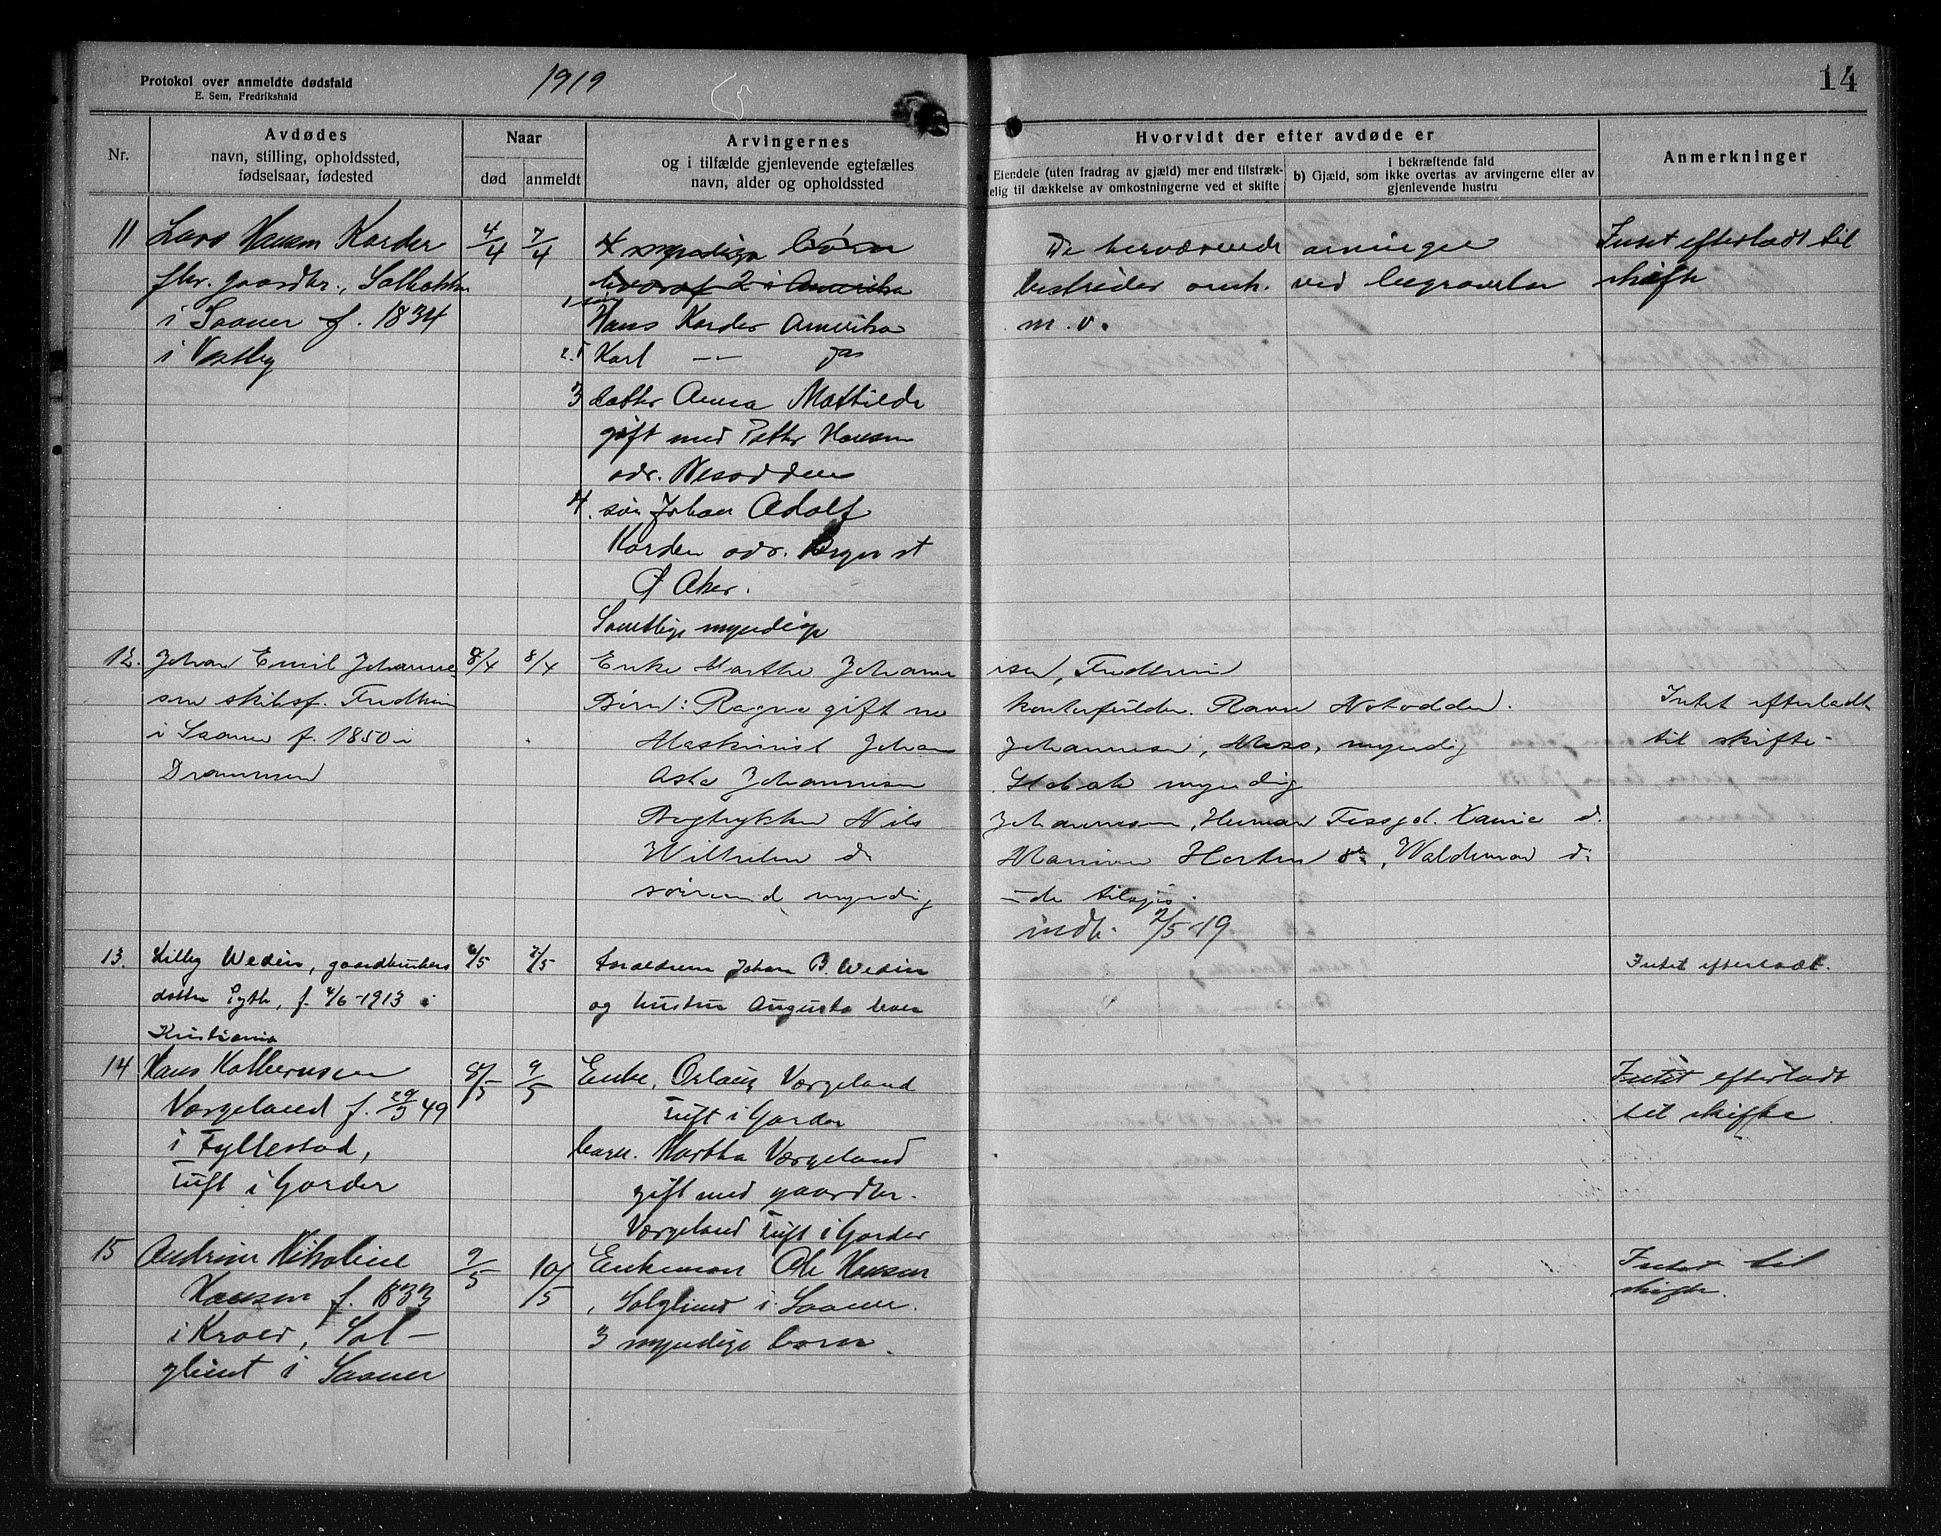 Protokol over anmeldte dødsfald
E. Sem, Fredrikshald
1919
14
Nr.
Avdødes
navn, stilling, opholdssted,
fødselsaar, fødested
Naar
død
anmeldt
Arvingernes
og i tilfælde gjenlevende egtefælles
navn, alder og opholdssted
Hvorvidt der efter avdøde er
Eiendele (uten fradrag av gjæld) mer end tilstræk-
kelig til dækkelse av omkostningerne ved et skifte
i bekræftende fald
b) Gjæld, som ikke overtas av arvingerne eller av
gjenlevende hustru
Anmerkninger
11
Lars Hansen Korder
fhv. gaardbr., Solbakken
i Saaner f. 1834
i Vestby
4/4
7/4
4 myndige børn
hvoraf 2 i Amerika
1 søn
Hans Korder Amerika
2. Karl —"—
3 datter Anna Mathilde
gift med Petter Hansen
adr. Nesodden
4. søn Johan Adolf
Korden adr. Bryn st
Ø Aker.
Samtlige myndige
De herværende arvinger
bestrider omk. ved begravelsen
m. v.
Intet efterladt til
skifte
12.
Johan Emil Johanne-
sen skibsf. Fredheim
i Saaner f. 1850 i
Drammen
8/4
8/4
Enke Marthe Johanne
sen, Fredheim
Børn: Ragna gift m
Notodden.
Maskinist Johan
Johannesen, Moss, myndig
Asta Johannesen
myndig
Bogtrykker Nils
Johannesen, Herman
Wilhelm d.
Horten d., Waldemar d.
myndig
indk. 2/5-19
Intet efterladt
til skifte-
13.
Lilly Wedin, gaardbrukers
datter f. 4/6-1913 i
Kristiania
6/5
7/5
Foreldrene Johan B. Wedin
og hustru Augusta lever
Intet efterladt.
14
Hans Kolbernsen
Værgeland f. 29/3 49
i Fyllestad,
Tuft i Gorder
8/5
9/5
Enke, Værgeland
Tuft i Gorder
barn. Martha Værgeland
gift med gaardbr.
Værgeland Tuft i Gorder
Intet efterladt
til skifte
15
Andrine Nikoline
Hansen f. 1833
i Kroer, Sol-
glimt i Saaner
9/5
10/5
Enkeman Ole Hansen
, Solglimt i Saaner.
3 myndige børn.
Intet til
skifte.